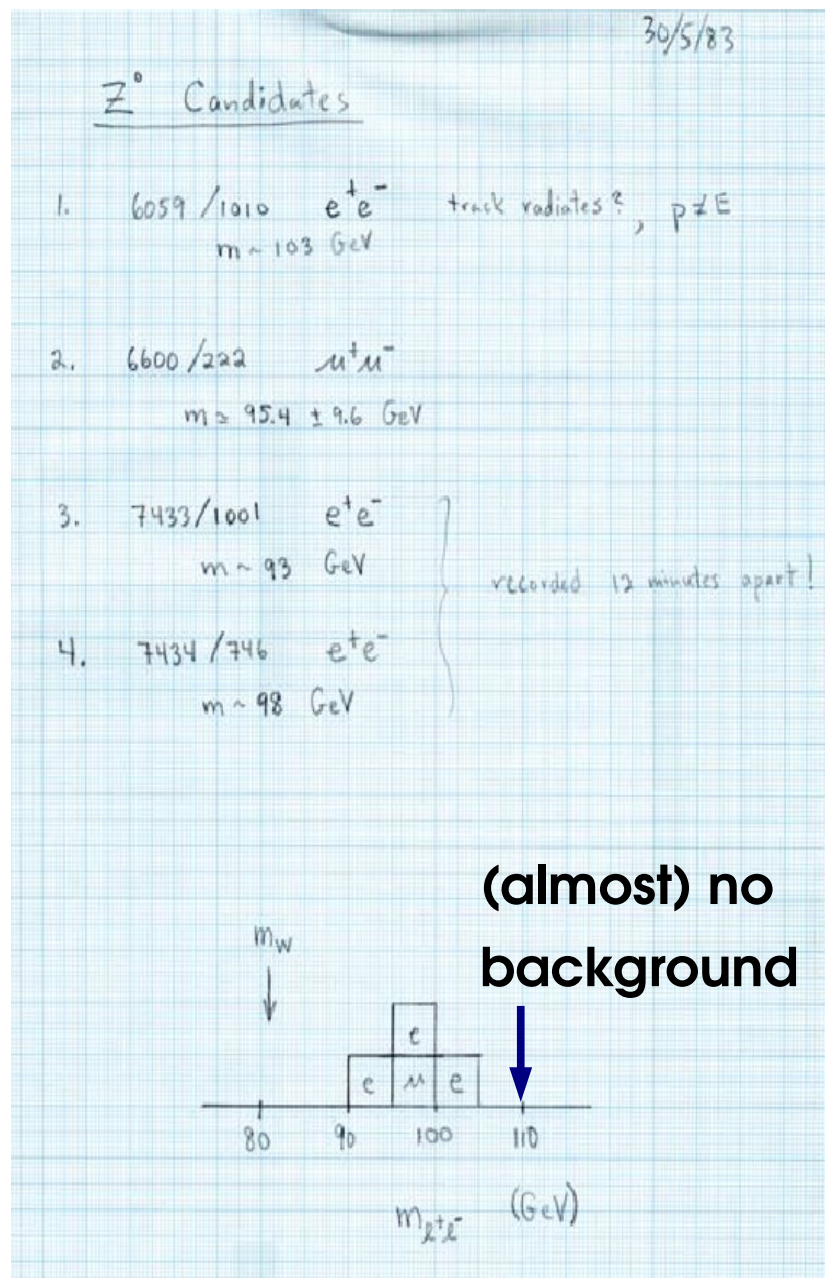 30/5/83
Z° Candidates
1. 6059/1010 e⁺e⁻ track radiates?, p≠E
m ~ 103 GeV
2. 6600/222 μ⁺μ⁻
m ≃ 95.4 ± 9.6 GeV
3. 7433/1001 e⁺e⁻
m ~ 93 GeV
recorded 12 minutes apart!
4. 7434/746 e⁺e⁻
m ~ 98 GeV
(almost) no
background
m_W
e
e μ e
80 90 100 110
m_ℓ⁺ℓ⁻ (GeV)